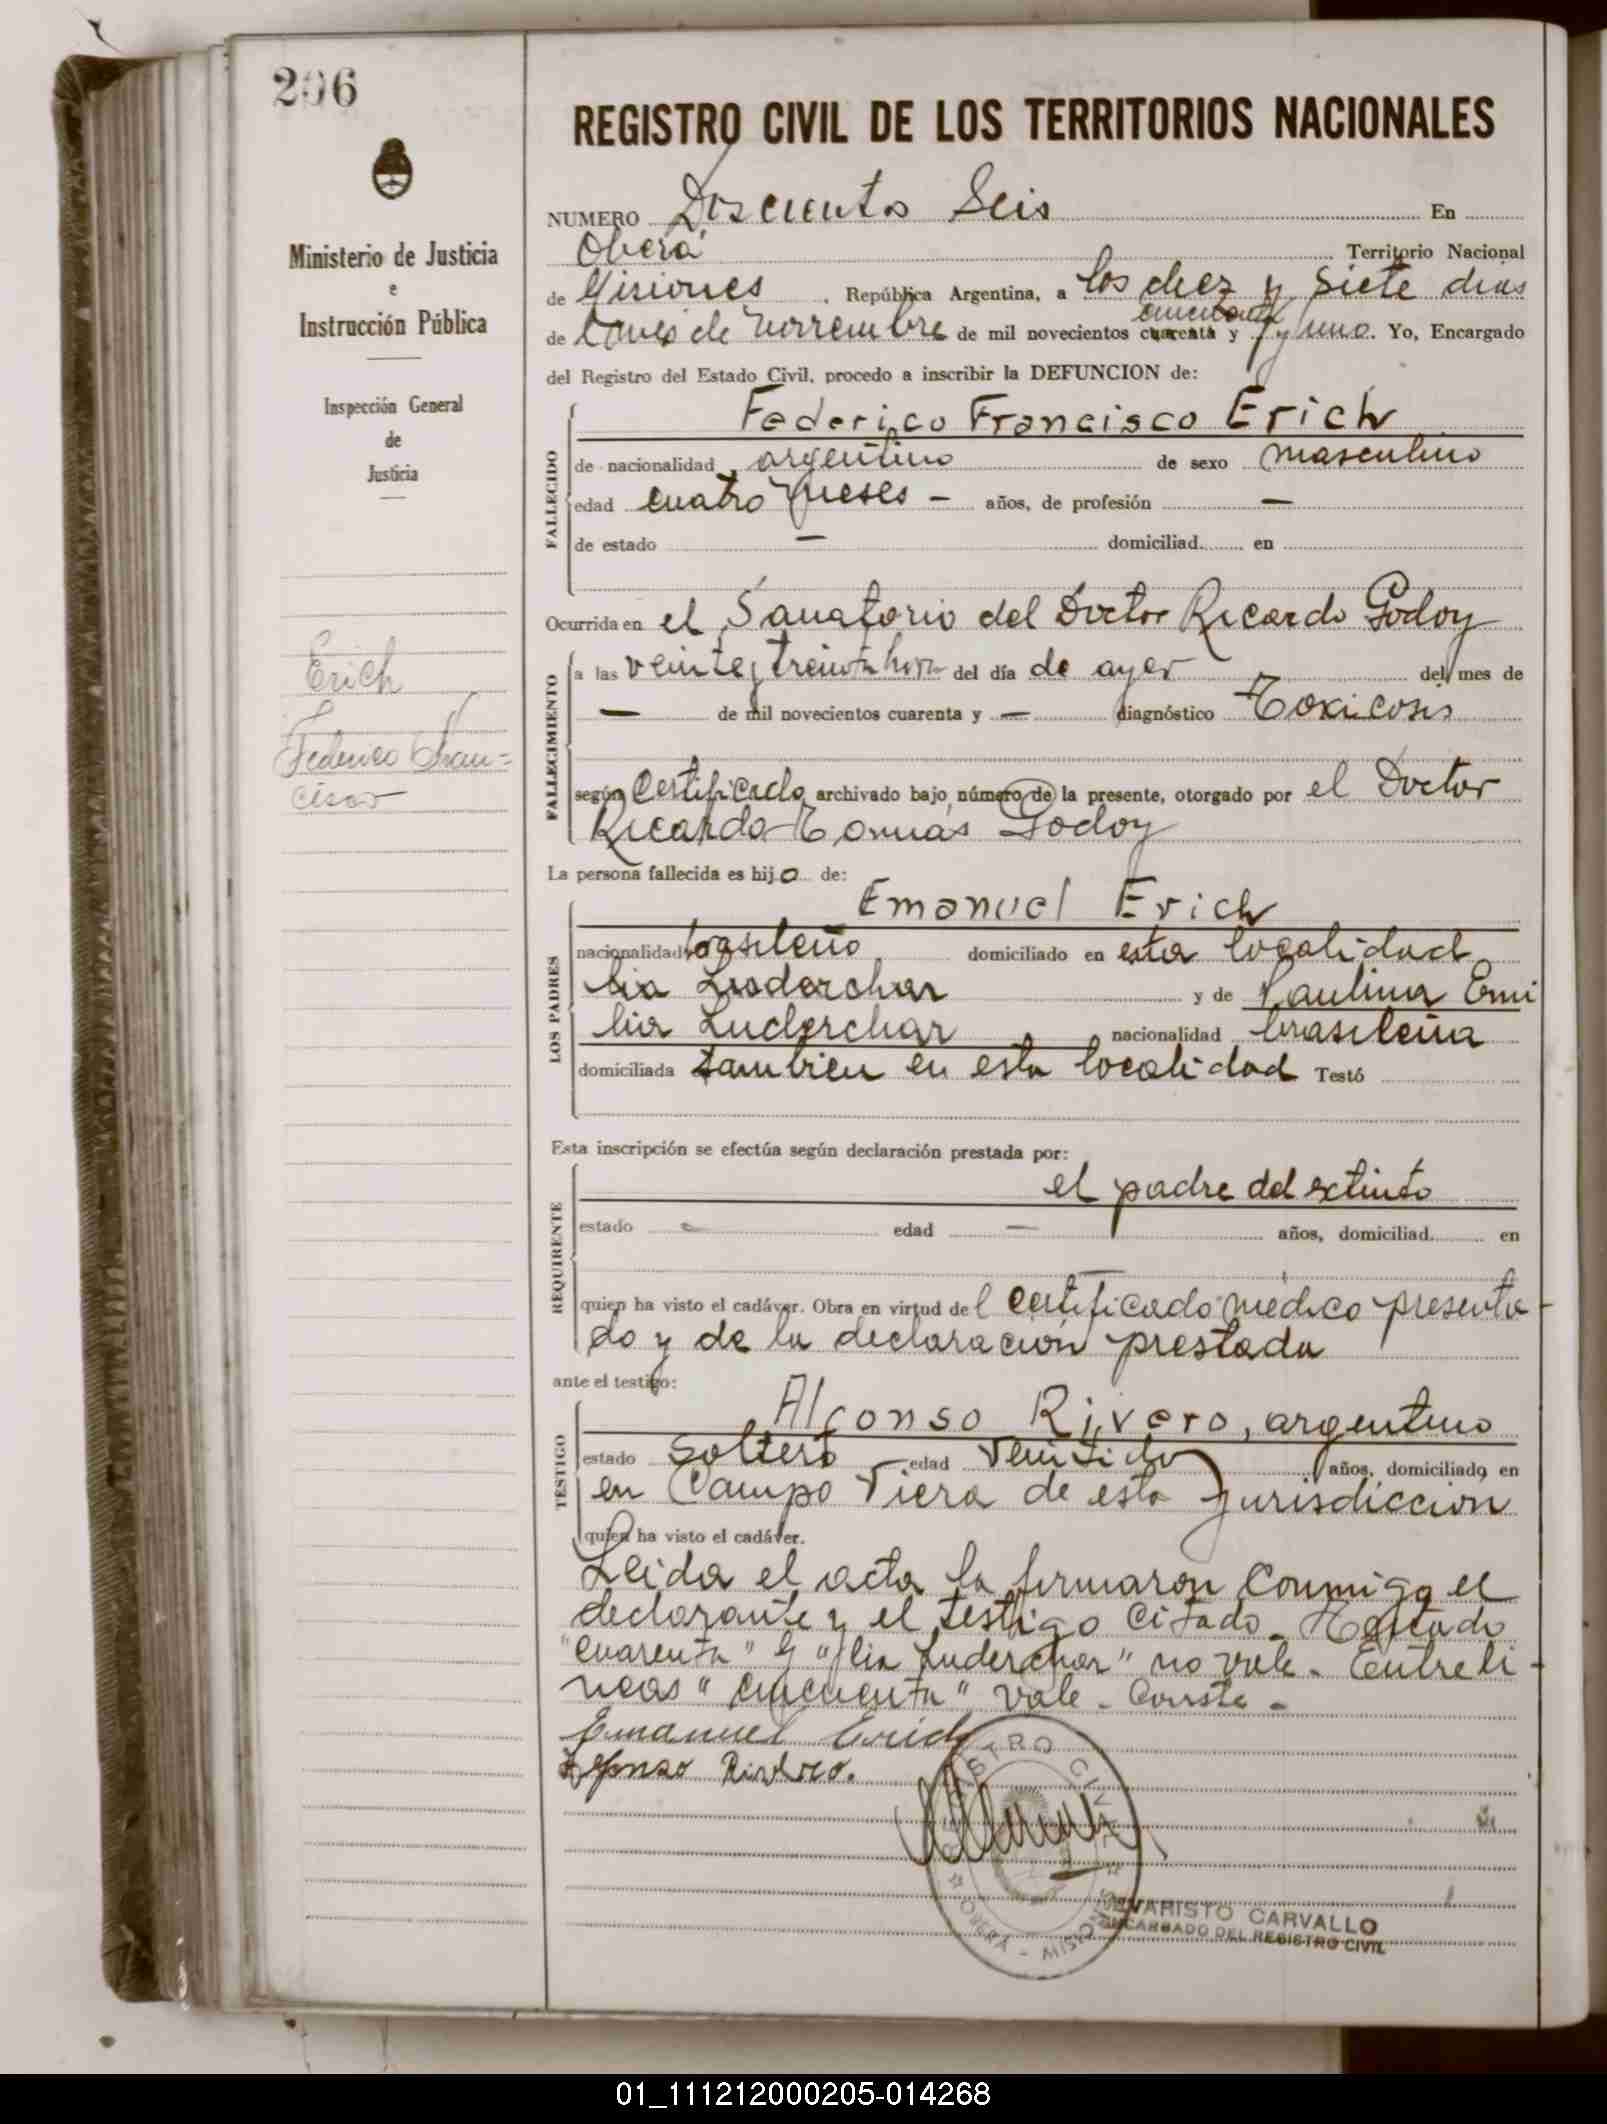 206
Ministerio de Justicia
e
Instrucción Pública
Inspección General
de
Justicia
Erich
Federico Fran=
cisco
REGISTRO CIVIL DE LOS TERRITORIOS NACIONALES
NUMERO Doscientos Seis En
Oberá Territorio Nacional
de Misiones, República Argentina, a los diez y siete dias
cincuenta
de l mes de Noviembre de mil novecientos cuarenta y y uno. Yo, Encargado
del Registro del Estado Civil, procedo a inscribir la DEFUNCION de:
FALLECIDO
Federico Francisco Erich
de nacionalidad argentino de sexo masculino
edad cuatro meses - años, de profesión —
de estado — domiciliad en
Ocurrida en el Sanatorio del Doctor Ricardo Godoy
FALLECIMIENTO
a las veinte y treinta horas del día de ayer del mes de
— de mil novecientos cuarenta y — diagnóstico Toxicosis
según Certificado archivado bajo número de la presente, otorgado por el Doctor
Ricardo Tomás Godoy
La persona fallecida es hijo de:
LOS PADRES
Emanuel Erich
nacionalidad brasileño domiciliado en esta localidad
lia Luderchar y de Paulina Emi
lia Luderchar nacionalidad brasileña
domiciliada tambien en esta localidad Testó
Esta inscripción se efectúa según declaración prestada por:
REQUIRENTE
el padre del extinto
estado — edad — años, domiciliad en
quien ha visto el cadáver. Obra en virtud del certificado médico presenta-
do y de la declaración prestada
ante el testigo:
TESTIGO
Alfonso Rivero, argentino
estado soltero edad veintidos años, domiciliado en
en Campo Viera de esta jurisdiccion
quien ha visto el cadáver.
Leida el acta la firmaron conmigo el
declarante y el testigo citado. Testado
"cuarenta" y "lia Luderchar" no vale. Entreli-
neas "cincuenta" vale. Conste.-
Emanuel Erich
Alfonso Rivero.
REGISTRO CIVIL
OBERÁ - MISIONES
EVARISTO CARVALLO
ENCARGADO DEL REGISTRO CIVIL
01_111212000205-014268